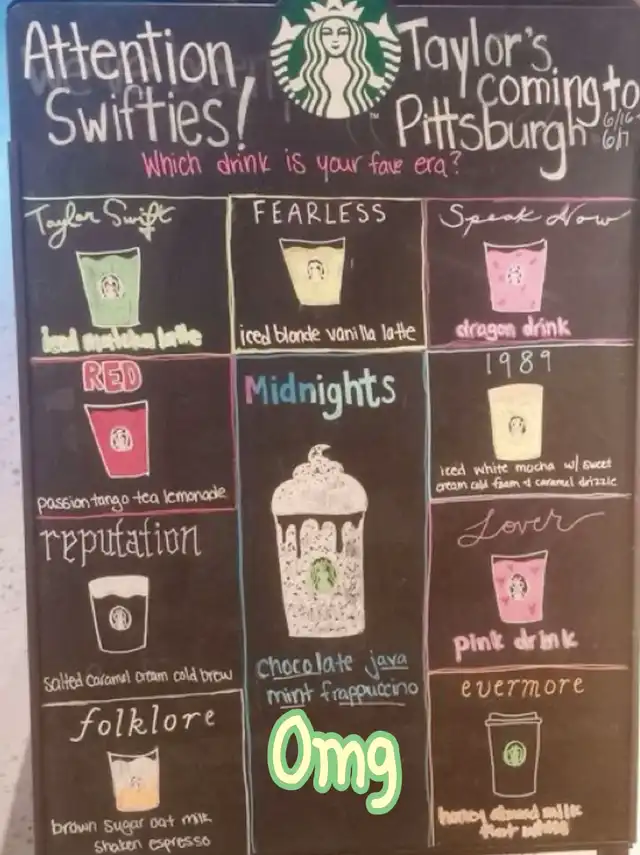 Attention Swifties!
Taylor's coming to Pittsburgh 6/16-6/17
Which drink is your fave era?
Taylor Swift
iced matcha latte
FEARLESS
iced blonde vanilla latte
Speak Now
dragon drink
RED
passion tango tea lemonade
Midnights
chocolate java
mint frappuccino
1989
iced white mocha w/ sweet
cream cold foam & caramel drizzle
reputation
salted caramel cream cold brew
Lover
pink drink
folklore
brown sugar oat milk
shaken espresso
evermore
honey almond milk
flat white
Omg